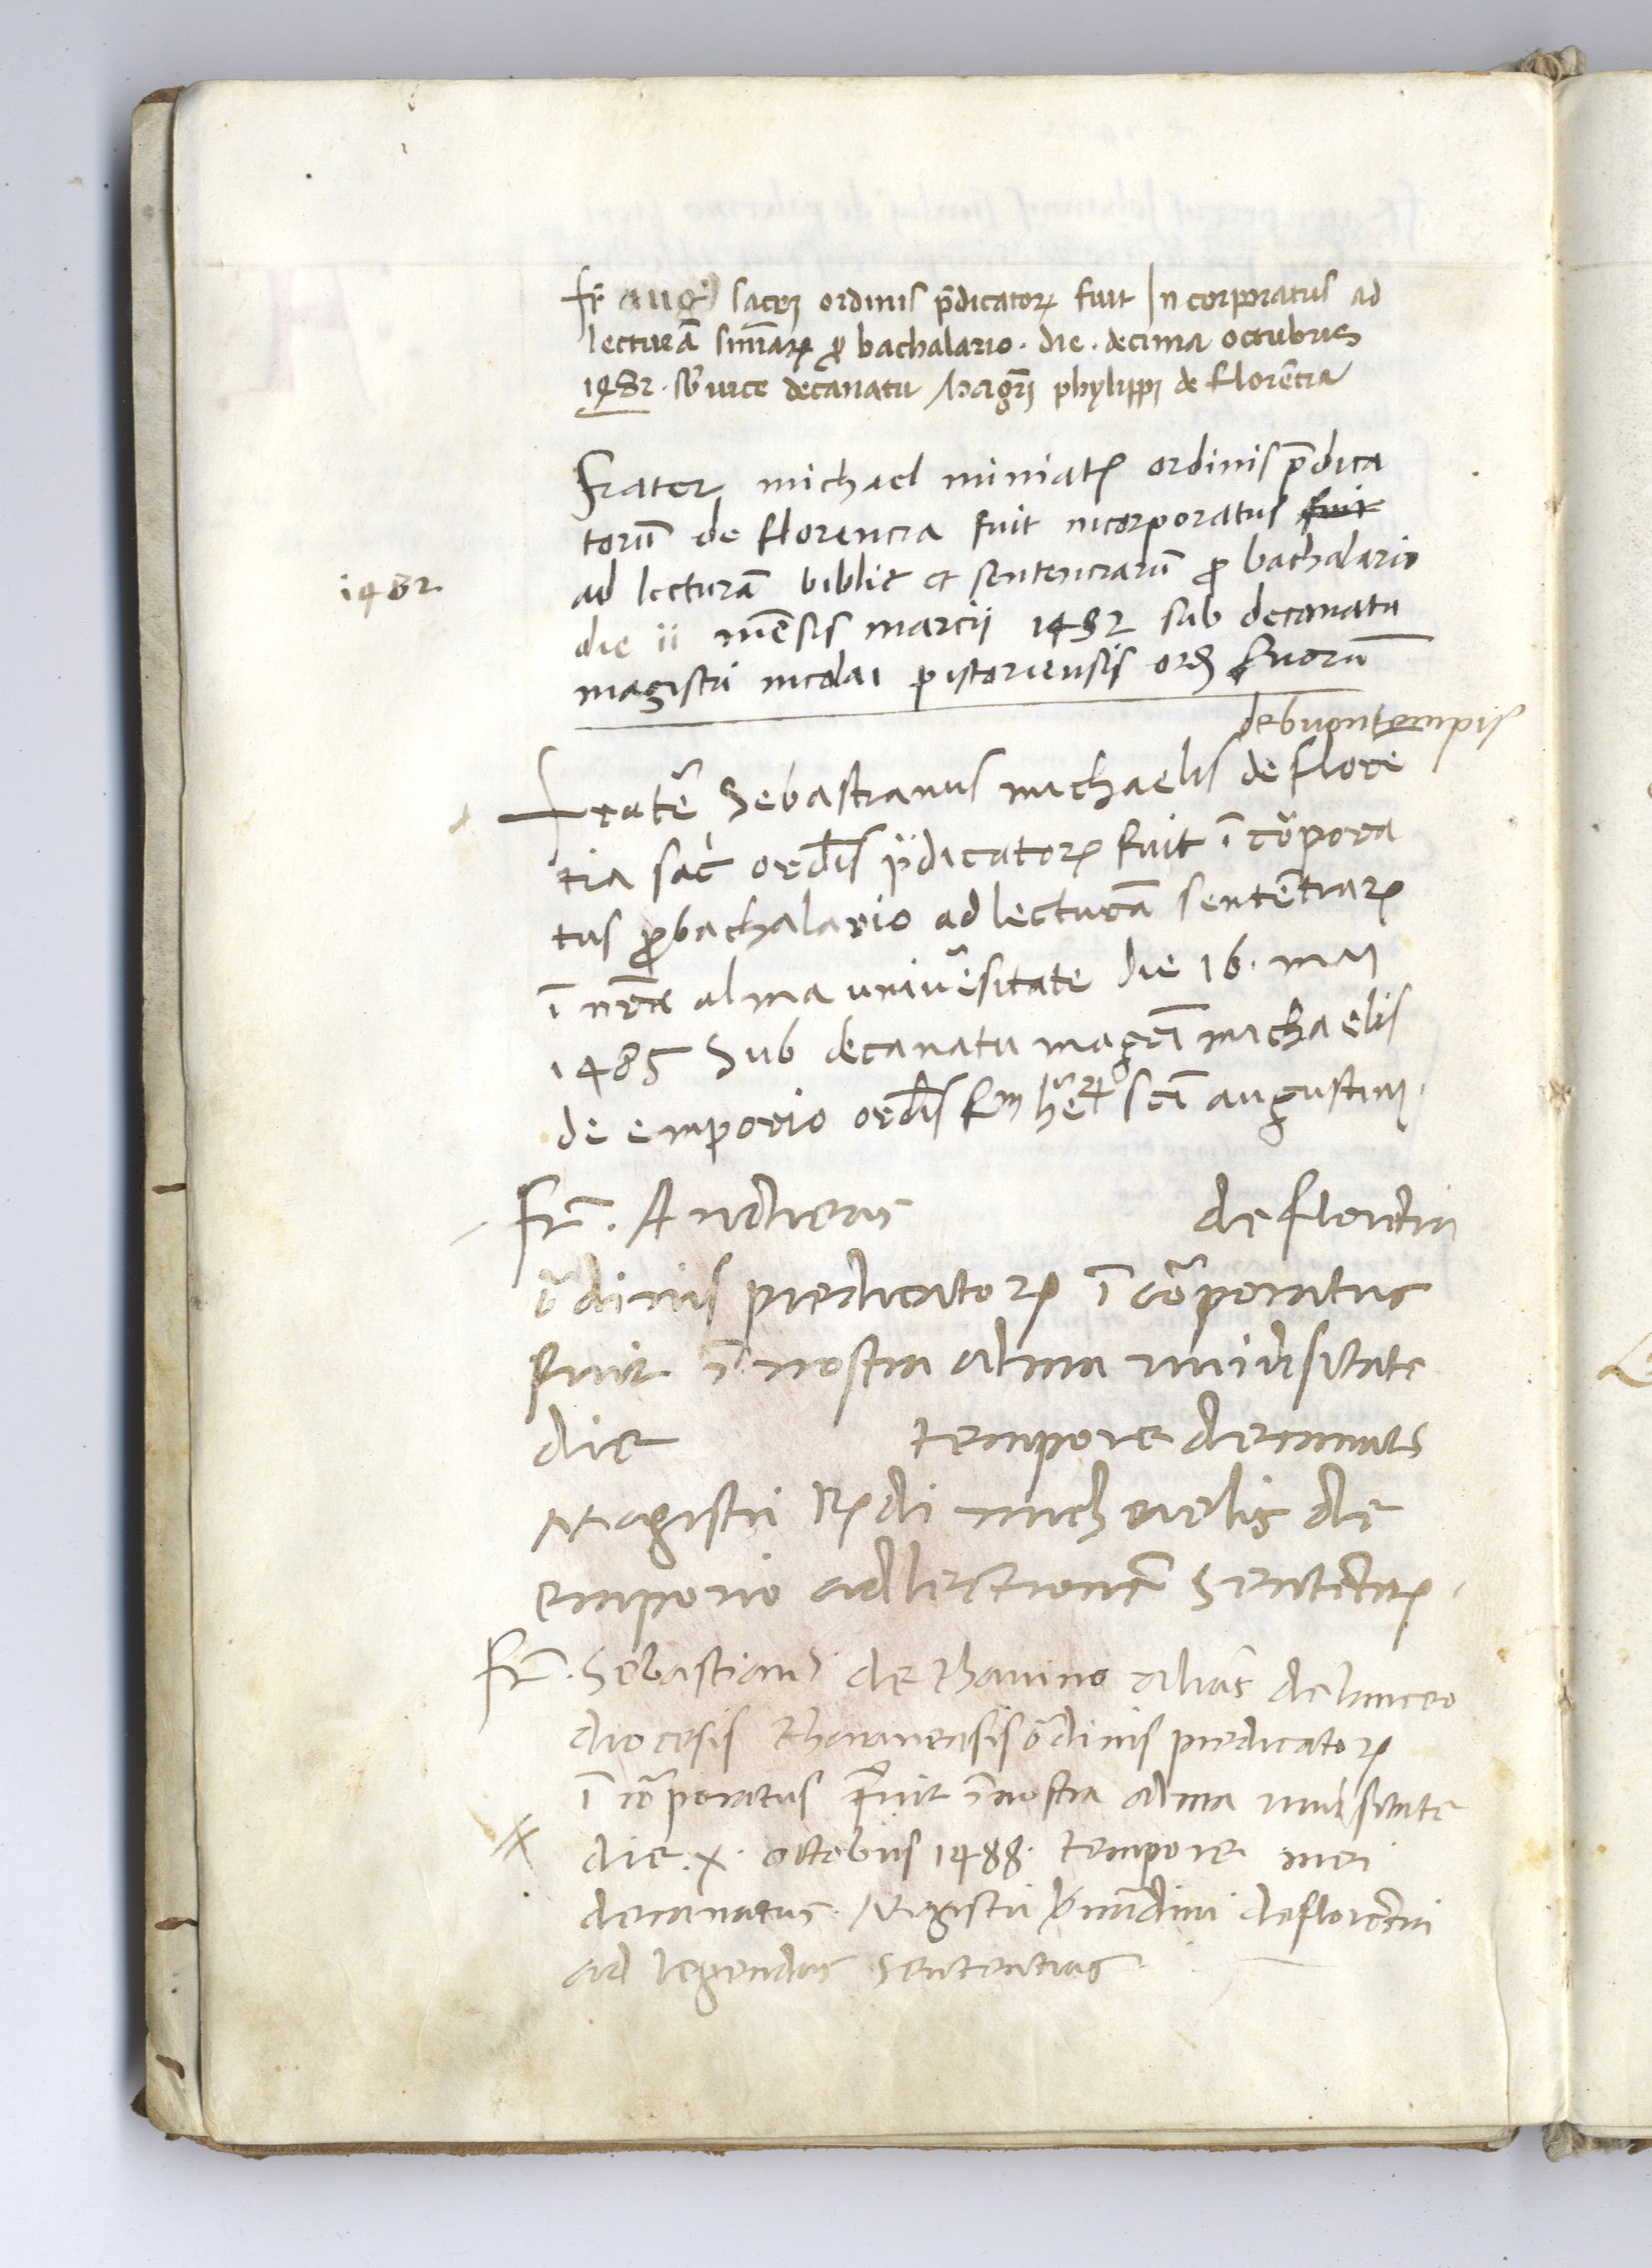 fr̄ aug⁹ sacri ordinis p̄dicatoꝝ fuit Incorporatus ad
lecturā sn̄iarꝝ ꝓ bachalario · die · decima octubris
1482 · sb̄ vice decanatu Magr̄i phylippi de florētia
frater michael miniatꝭ ordinis p̄dica
torū de florencia fuit incorporatus fuit
1482
ad lecturā biblie et sentenciarū ꝓ bachalario
die ii mēsis marcii 1482 sub decanatu
magistri nicolai pistoriensis ord̄ suorū
debuontempis
fratē Sebastianus michaelis de flore
tia sac̄ ord̄is p̄dicatoꝝ fuit ī cōpora
tus ꝓbachalario ad lecturā sentētiarꝝ
ī nr̄a alma univēsitate die 16 · mai
1485 Sub decanatu magr̄i michaelis
de emporio ord̄is frm̄ her̄ sc̄i augustini ·
fr̄ . Andreas de flor̄tia
ōdinis predicatoꝝ ī cōporatus
fuit ī nostra alma univ̄sitate
die tempore decanatus
Magistri Rꝭdi michaelis de
emporio ad lectionē Sentētiaꝝ ·
fr̄ . Sebastian⁹ de
diocesis ōdinis predicatoꝝ
ī cōporatus fuit ī nostra alma univ̄sitate
die . x . octobris 1488 · tempore mei
decanatus · Magistri de florētia
ad legendas Sententias